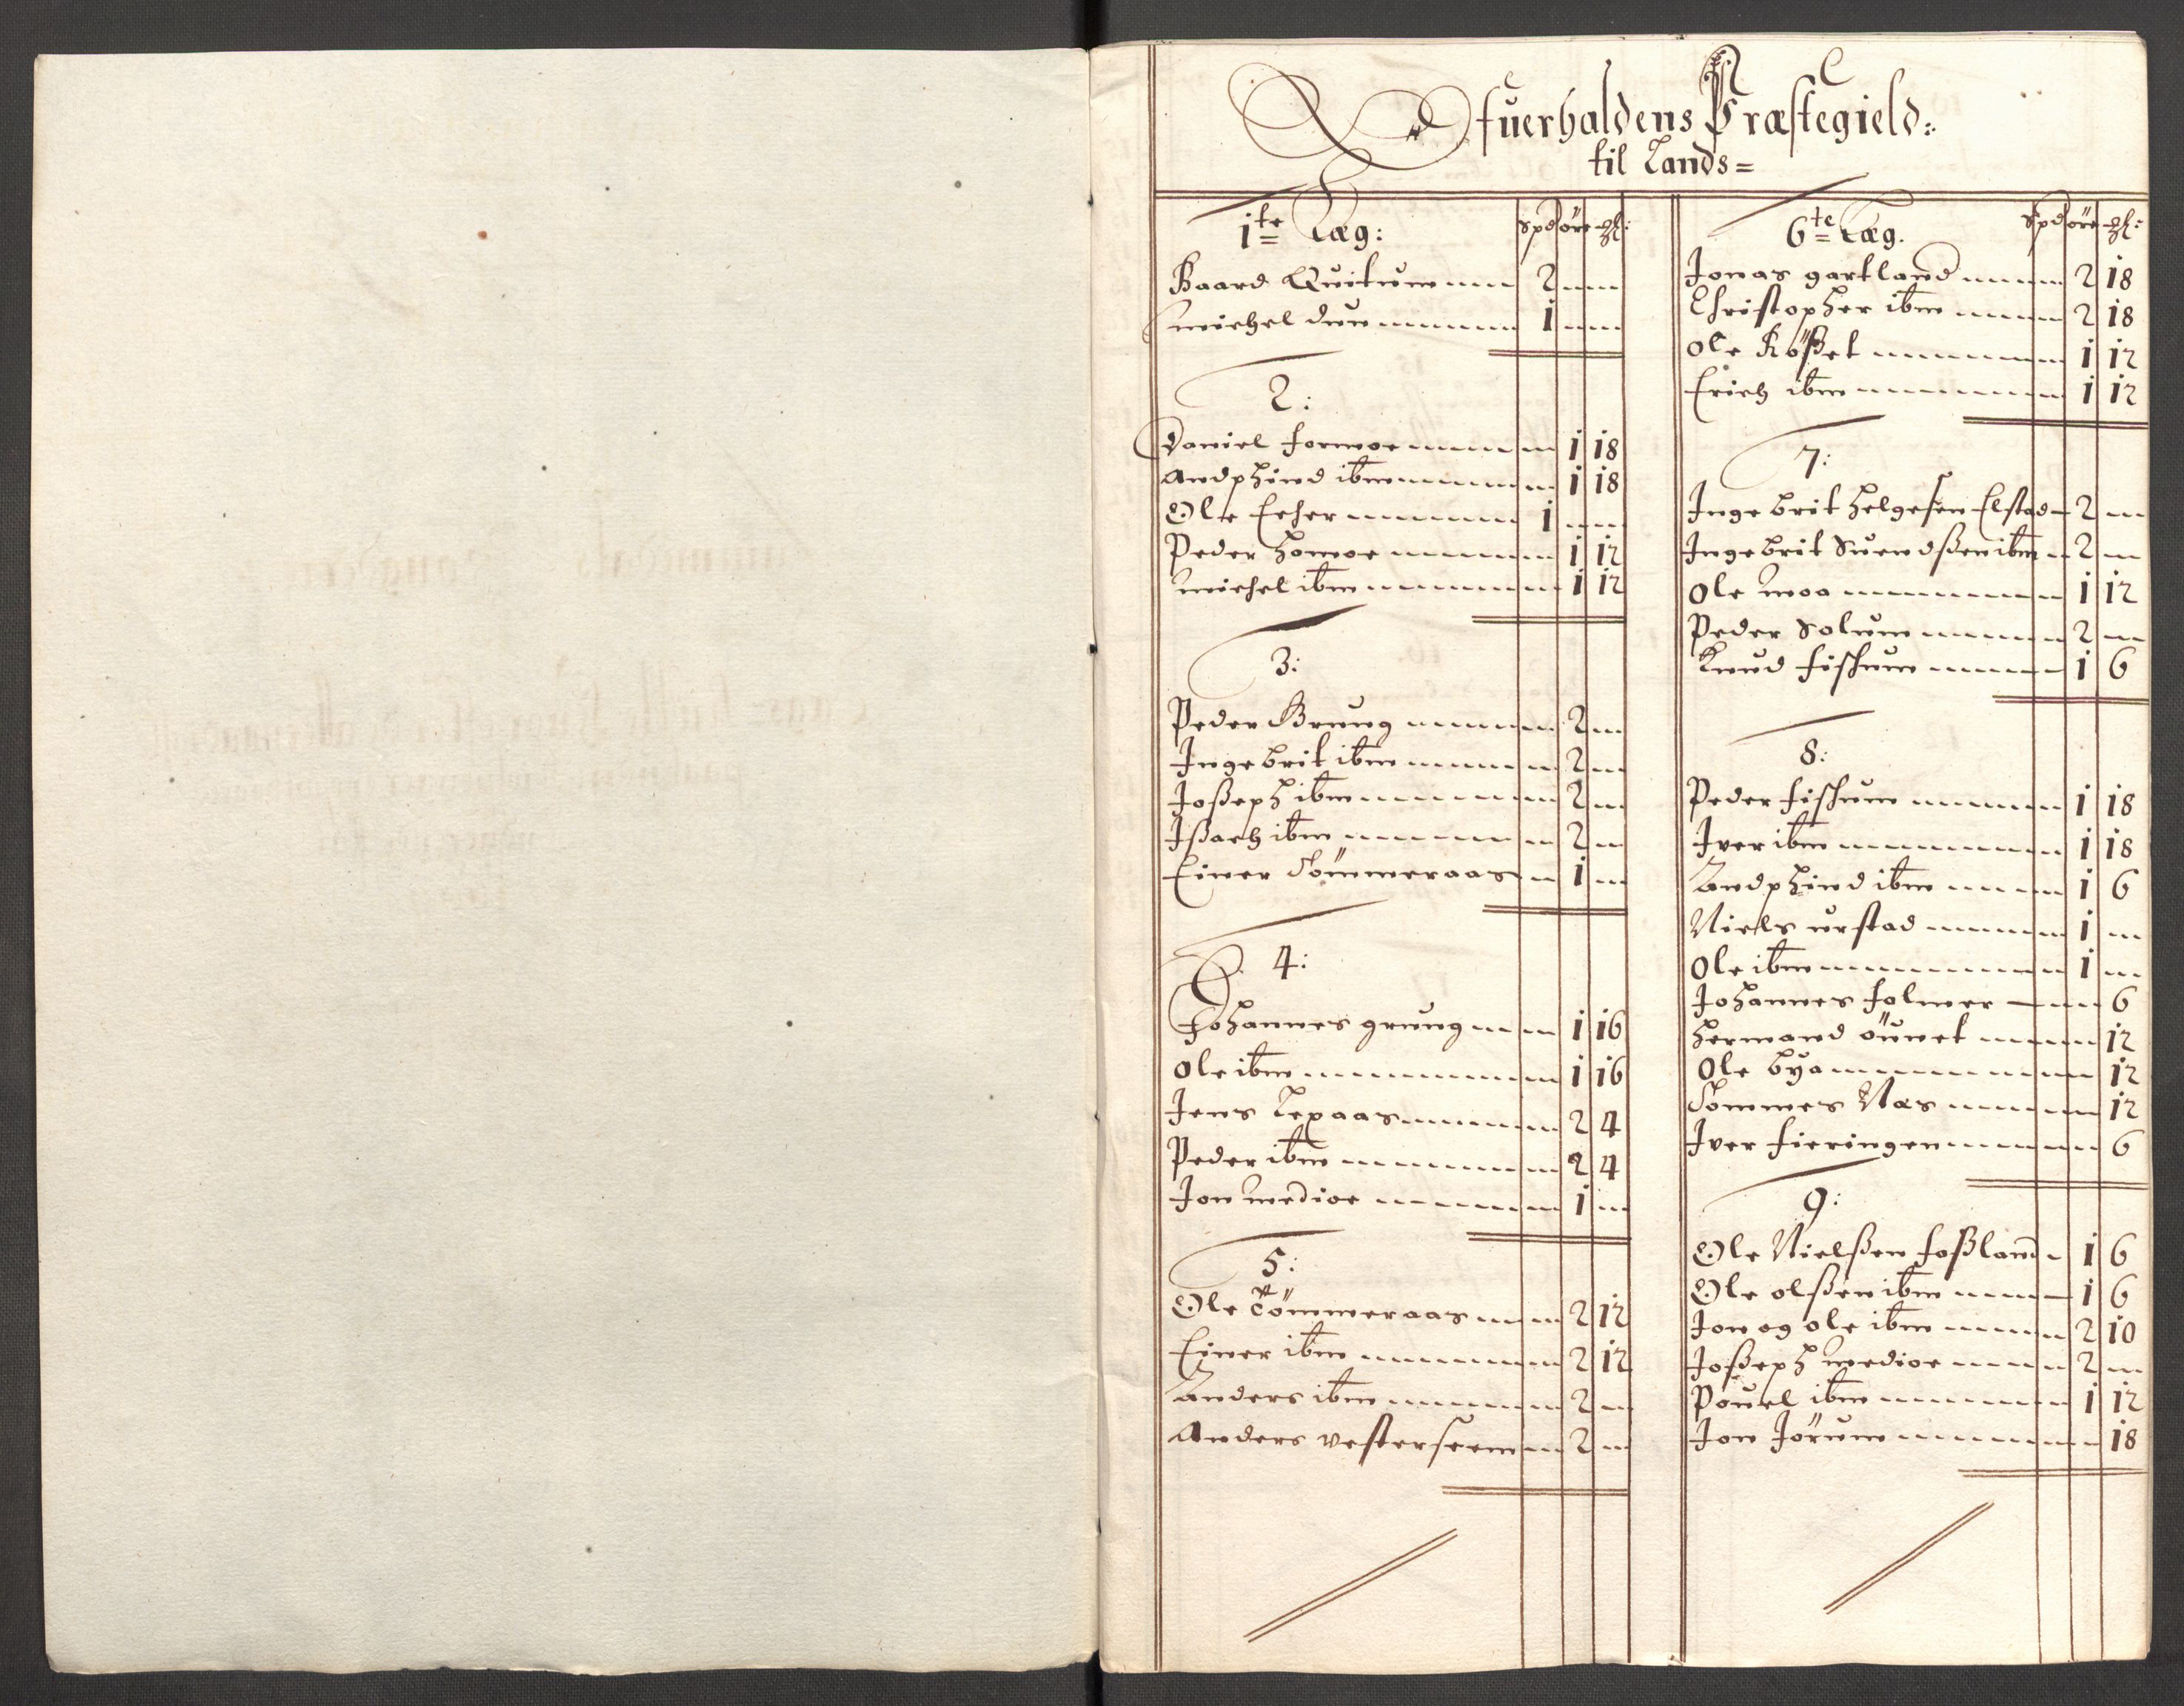 Ofuerhaldens Præstegield:
til Lands=
1te Læg: Spd øre ml:
Baard Quitum 2
Michel dun 1
2:
Daniel formoe 1 18
Andphind ibm 1 18
Ole Ecker 1
Peder homoe 1 12
Michel ibm 1 12
3:
Peder Grung 2
Ingebrit ibm 2
Joßeph ibm 2
Ißach ibm 2
Einer Tömmeraas 1
4:
Johannes grung 1 16
Ole ibm 1 16
Jens Lexaas 2 4
Peder ibm 2 4
Jon medioe 1
5:
Ole Tömmeraas 2 12
Einer ibm 2 12
Anders ibm 2
Anders vesterseem 2
6te Læg. Spd øre ml:
Jonas gartland 2 18
Christopher ibm 2 18
Ole Rößet 1 12
Erich ibm 1 12
7:
Ingebrit helgesen Elstad 2
Ingebrit Suendßen ibm 2
Ole moa 1 12
Peder Solum 2
Knud fischum 1 6
8:
Peder fischum 1 18
Iver ibm 1 18
Andphind ibm 1 6
Niels urstad 1
Ole ibm 1
Johannes folmer 6
hermand öunet 12
Ole bya 12
Tommes Næs 12
Iver fieringen 6
9:
Ole Nielßen foßland 1 6
Ole olßen ibm 1 6
Jon og ole ibm 2 10
Joßeph medioe 2
Pouel ibm 1 12
Jon Jörum 18